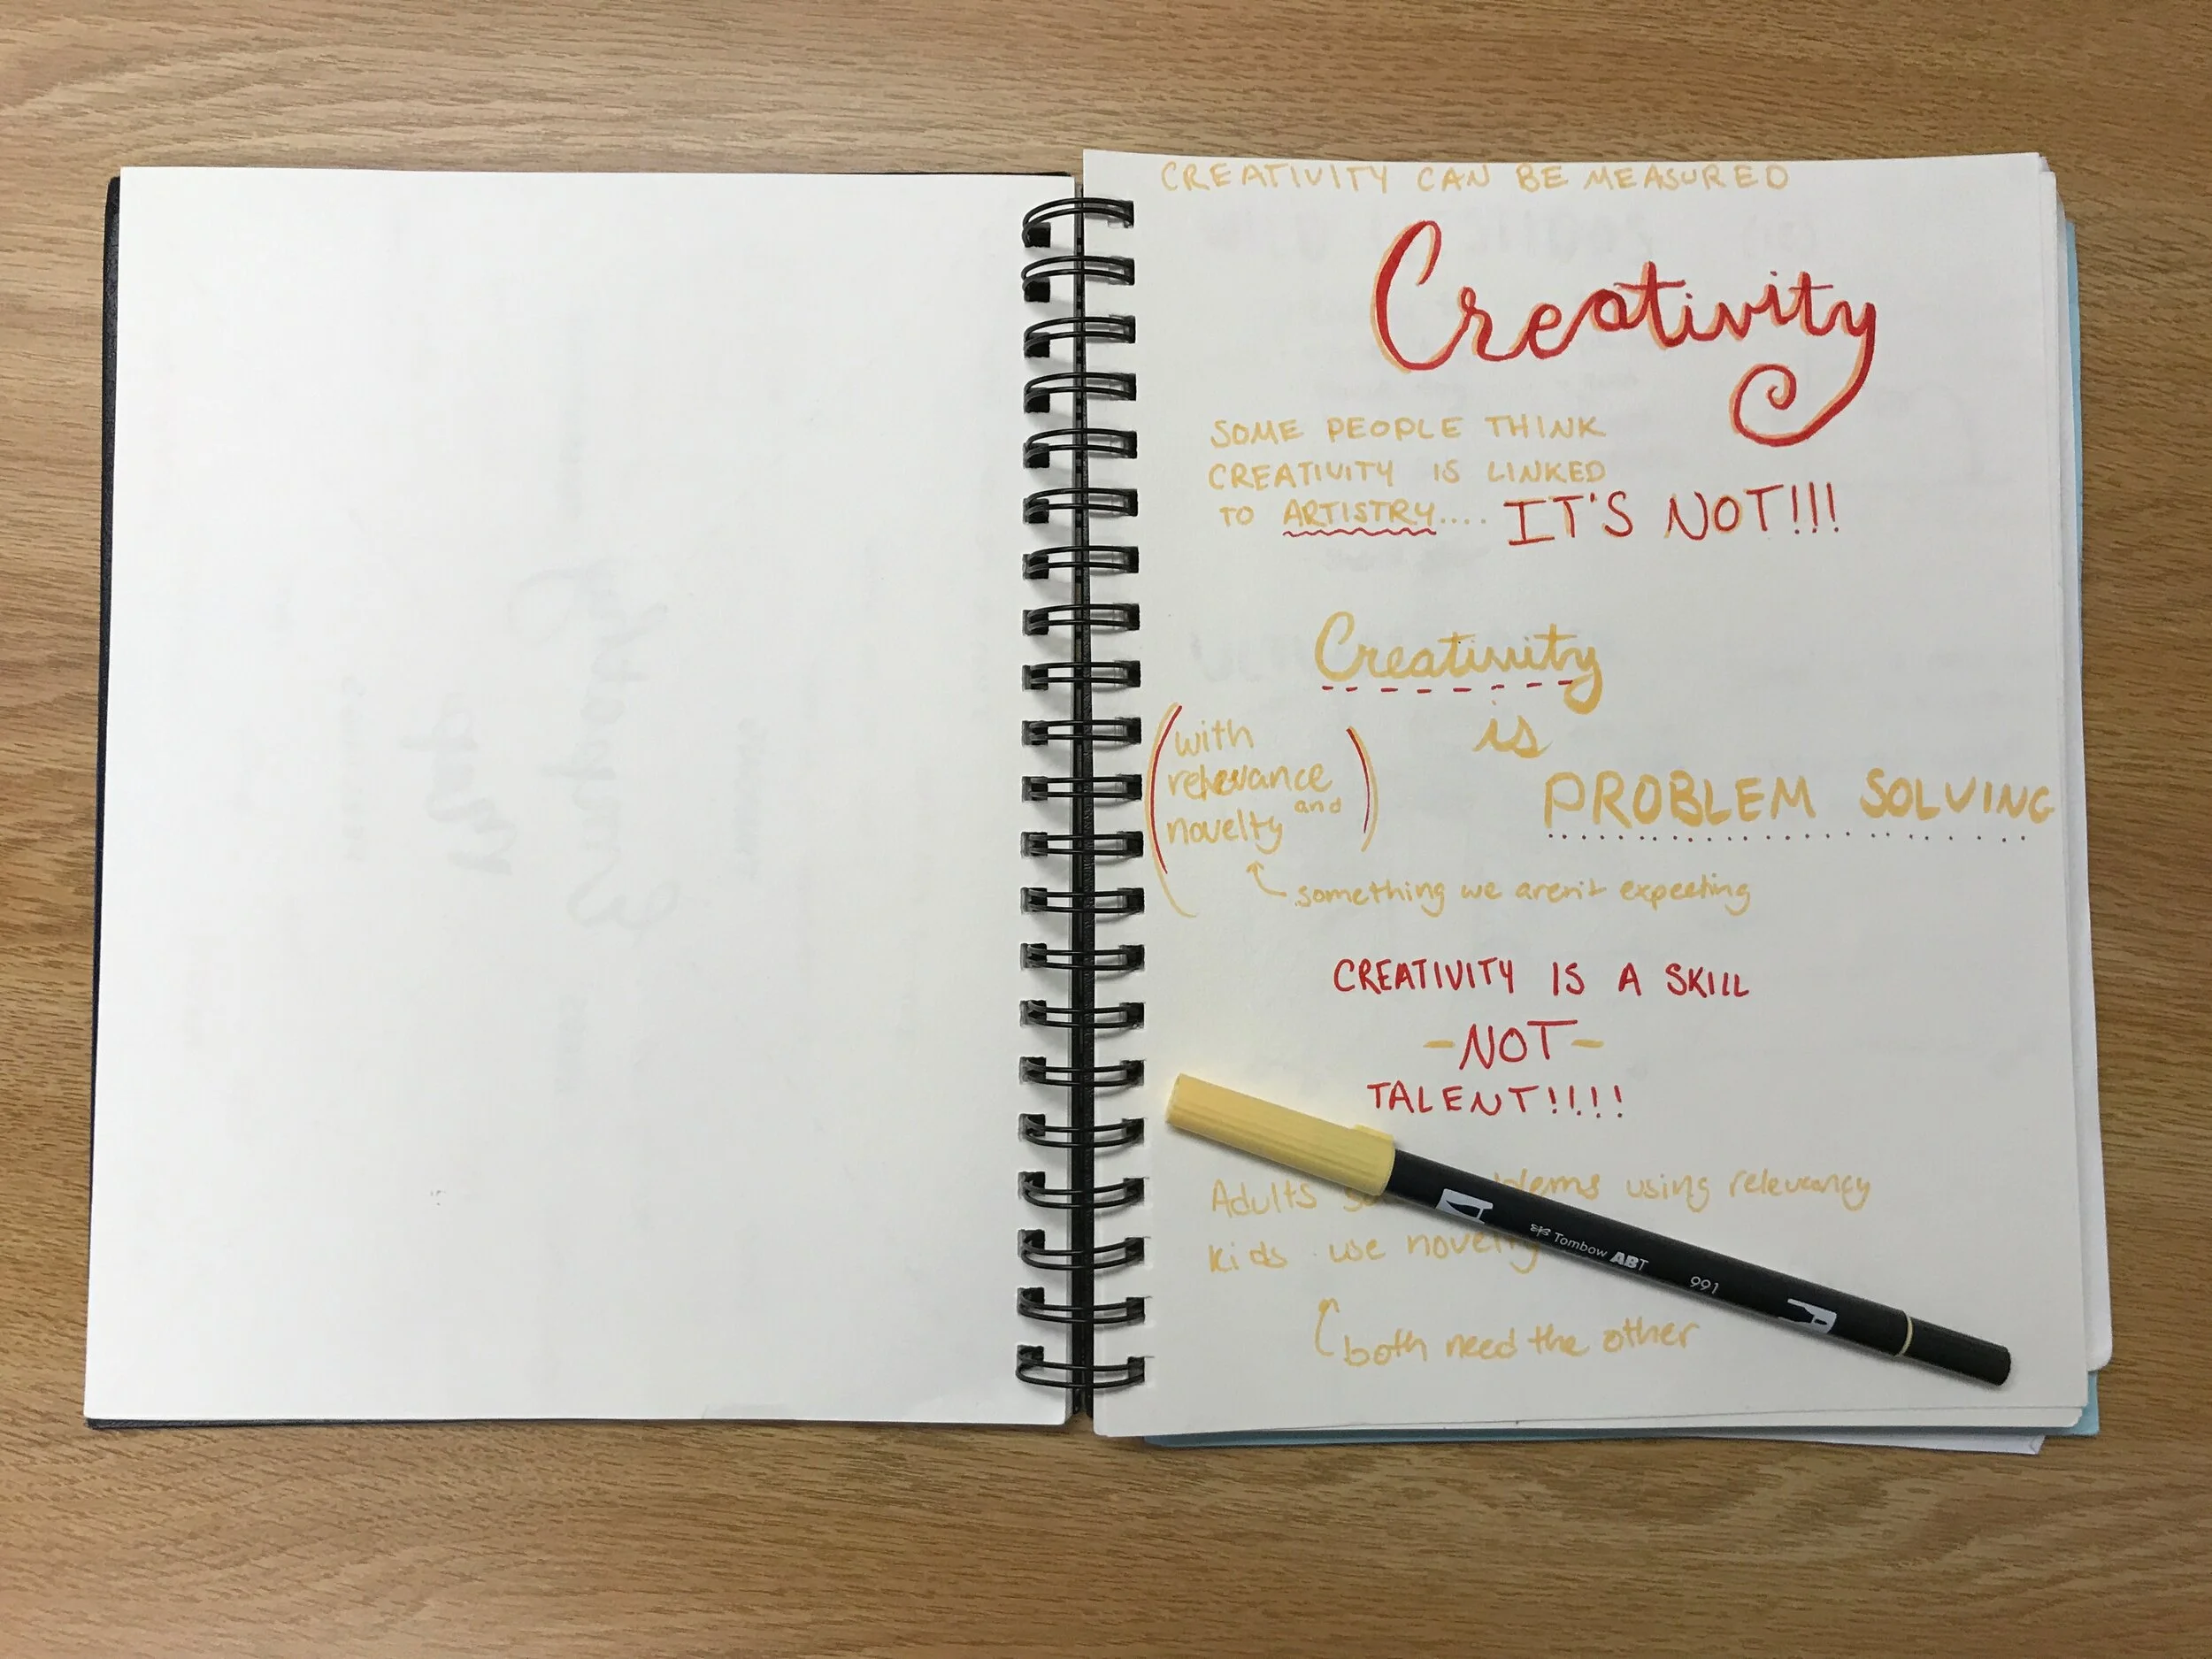 CREATIVITY CAN BE MEASURED
Creativity
SOME PEOPLE THINK
CREATIVITY IS LINKED
TO ARTISTRY.... IT'S NOT!!!
Creativity
is
PROBLEM SOLVING
(with
relevance
and
novelty)
something we aren't expecting
CREATIVITY IS A SKILL
-NOT-
TALENT!!!!
Adults using relevancy
kids use novelty
both need the other
Tombow ABT 991